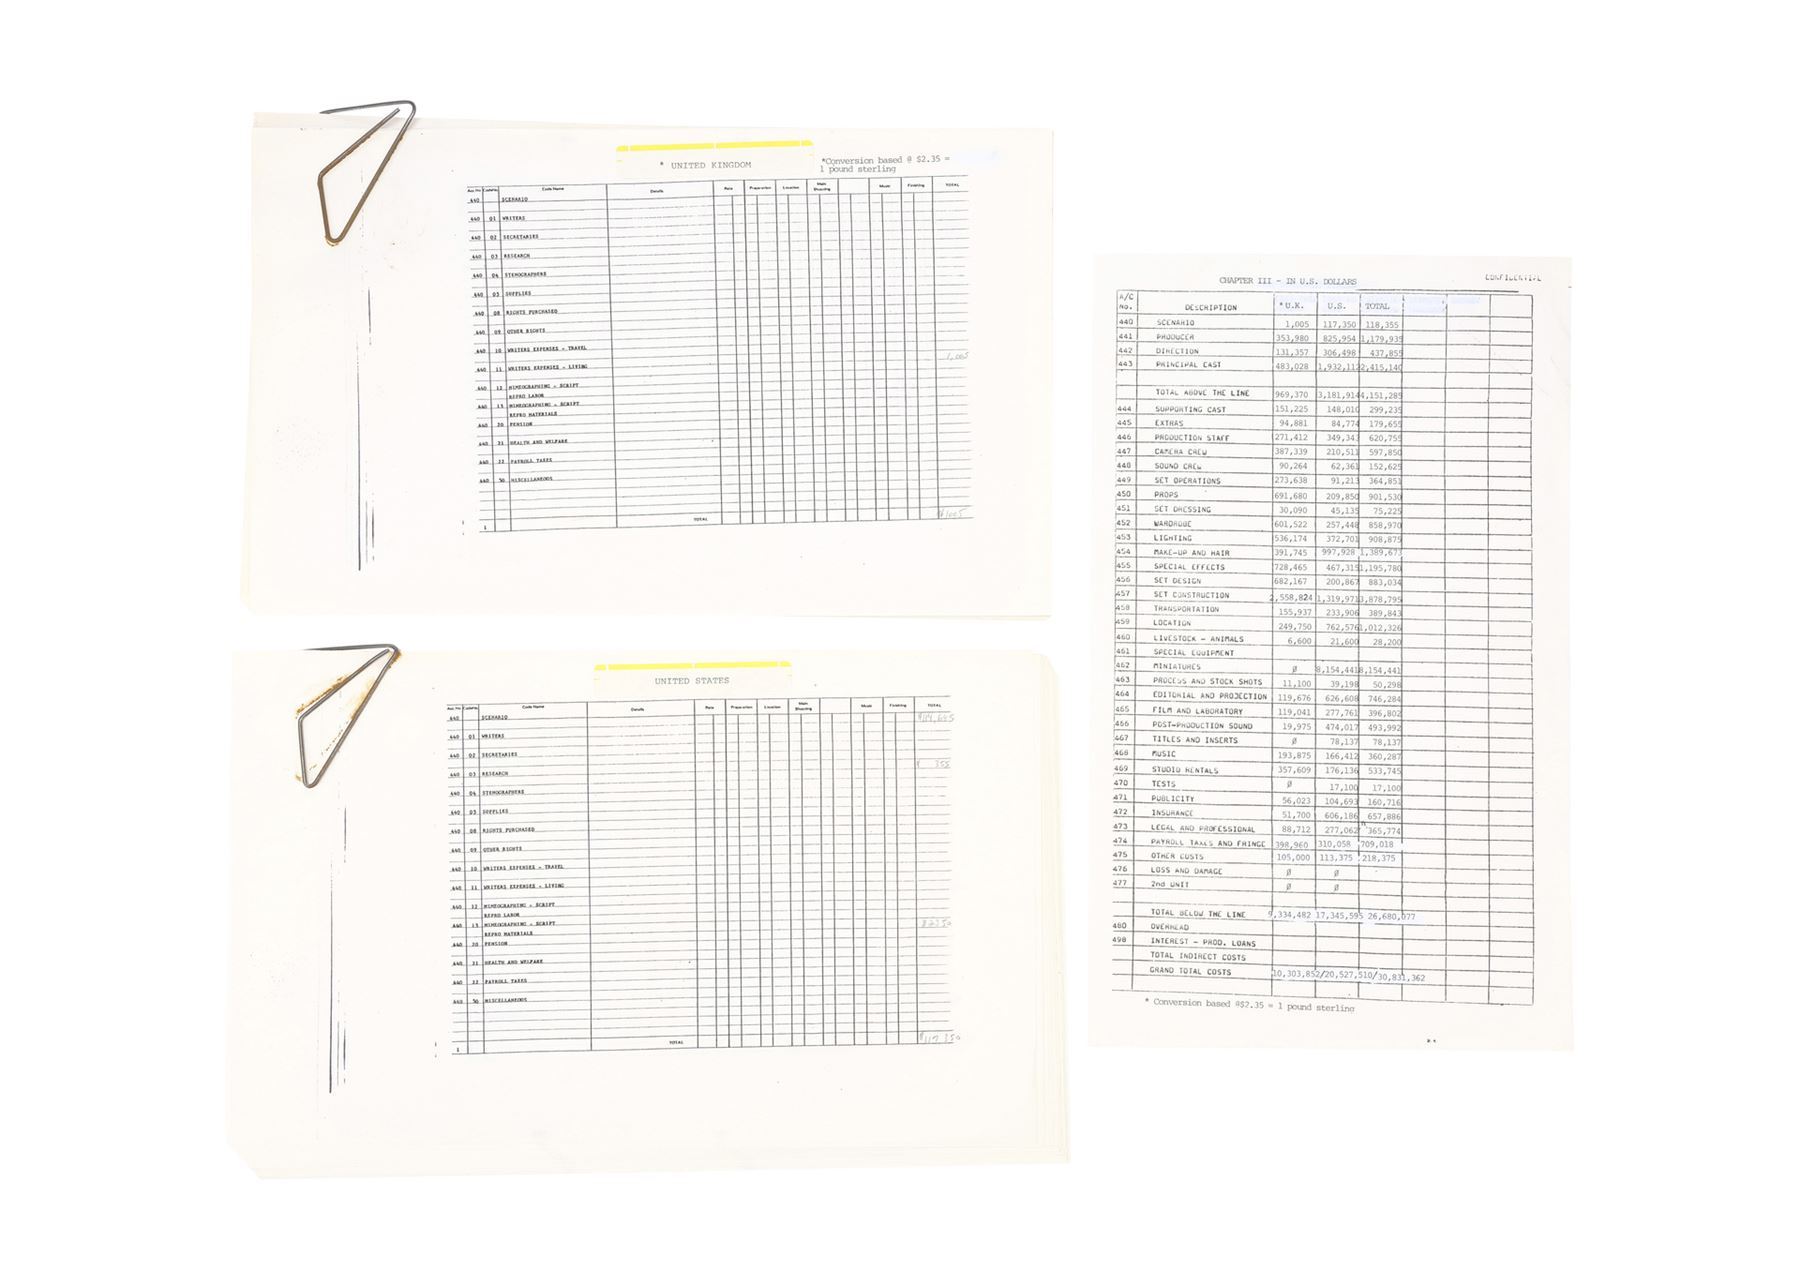 * UNITED KINGDOM
*Conversion based @ $2.35 =
1 pound sterling
Acc.No CodeNo. Code Name Details Rate Preparation Location Main Shooting Music Finishing TOTAL
440 SCENARIO
440 01 WRITERS
440 02 SECRETARIES
440 03 RESEARCH
440 04 STENOGRAPHERS
440 05 SUPPLIES
440 08 RIGHTS PURCHASED
440 09 OTHER RIGHTS
440 10 WRITERS EXPENSES - TRAVEL
1,005
440 11 WRITERS EXPENSES - LIVING
440 12 MIMEOGRAPHING - SCRIPT
REPRO LABOR
440 13 MIMEOGRAPHING - SCRIPT
REPRO MATERIALS
440 20 PENSION
440 21 HEALTH AND WELFARE
440 22 PAYROLL TAXES
440 50 MISCELLANEOUS
1 TOTAL $1005
UNITED STATES
Acc.No CodeNo. Code Name Details Rate Preparation Location Main Shooting Music Finishing TOTAL
440 SCENARIO $114,645
440 01 WRITERS
440 02 SECRETARIES
$ 355
440 03 RESEARCH
440 04 STENOGRAPHERS
440 05 SUPPLIES
440 08 RIGHTS PURCHASED
440 09 OTHER RIGHTS
440 10 WRITERS EXPENSES - TRAVEL
440 11 WRITERS EXPENSES - LIVING
440 12 MIMEOGRAPHING - SCRIPT
REPRO LABOR
440 13 MIMEOGRAPHING - SCRIPT $2350
REPRO MATERIALS
440 20 PENSION
440 21 HEALTH AND WELFARE
440 22 PAYROLL TAXES
440 50 MISCELLANEOUS
1 TOTAL $117,350
CHAPTER III - IN U.S. DOLLARS
CONFIDENTIAL
A/C No. DESCRIPTION * U.K. U.S. TOTAL
440 SCENARIO 1,005 117,350 118,355
441 PRODUCER 353,980 825,954 1,179,935
442 DIRECTION 131,357 306,498 437,855
443 PRINCIPAL CAST 483,028 1,932,112 2,415,140
TOTAL ABOVE THE LINE 969,370 3,181,914 4,151,285
444 SUPPORTING CAST 151,225 148,010 299,235
445 EXTRAS 94,881 84,774 179,655
446 PRODUCTION STAFF 271,412 349,343 620,755
447 CAMERA CREW 387,339 210,511 597,850
448 SOUND CREW 90,264 62,361 152,625
449 SET OPERATIONS 273,638 91,213 364,851
450 PROPS 691,680 209,850 901,530
451 SET DRESSING 30,090 45,135 75,225
452 WARDROBE 601,522 257,448 858,970
453 LIGHTING 536,174 372,701 908,875
454 MAKE-UP AND HAIR 391,745 997,928 1,389,673
455 SPECIAL EFFECTS 728,465 467,315 1,195,780
456 SET DESIGN 682,167 200,867 883,034
457 SET CONSTRUCTION 2,558,824 1,319,971 3,878,795
458 TRANSPORTATION 155,937 233,906 389,843
459 LOCATION 249,750 762,576 1,012,326
460 LIVESTOCK - ANIMALS 6,600 21,600 28,200
461 SPECIAL EQUIPMENT
462 MINIATURES Ø 8,154,441 8,154,441
463 PROCESS AND STOCK SHOTS 11,100 39,198 50,298
464 EDITORIAL AND PROJECTION 119,676 626,608 746,284
465 FILM AND LABORATORY 119,041 277,761 396,802
466 POST-PRODUCTION SOUND 19,975 474,017 493,992
467 TITLES AND INSERTS Ø 78,137 78,137
468 MUSIC 193,875 166,412 360,287
469 STUDIO RENTALS 357,609 176,136 533,745
470 TESTS Ø 17,100 17,100
471 PUBLICITY 56,023 104,693 160,716
472 INSURANCE 51,700 606,186 657,886
473 LEGAL AND PROFESSIONAL 88,712 277,062 365,774
474 PAYROLL TAXES AND FRINGE 398,960 310,058 709,018
475 OTHER COSTS 105,000 113,375 218,375
476 LOSS AND DAMAGE Ø Ø
477 2nd UNIT Ø Ø
TOTAL BELOW THE LINE 9,334,482 17,345,595 26,680,077
480 OVERHEAD
498 INTEREST - PROD. LOANS
TOTAL INDIRECT COSTS
GRAND TOTAL COSTS 10,303,852/20,527,510/30,831,362
* Conversion based @$2.35 = 1 pound sterling